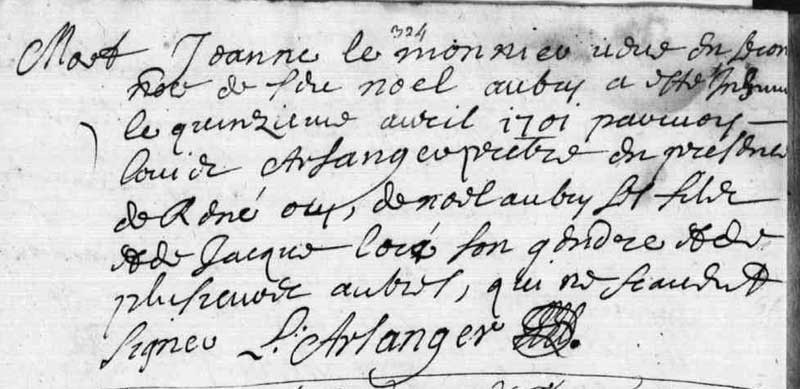 324
Mort Jeanne le monnier veue en secon
noce de feu noel aubry a esté Inhum
le quinzieme avril 1701 par moy
louis Arsanger prebtre en presence
de René ory, de noel aubry ses filz
et de Jacque son gendre et de
plusieurs autres, qui ne scavent
signer L. Arsanger